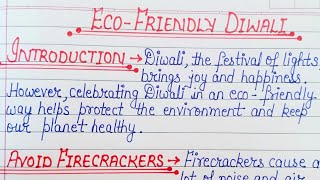 ECO-FRIENDLY DIWALI
INTRODUCTION → Diwali, the festival of lights
brings joy and happiness.
However, celebrating Diwali in an eco-friendly
way helps protect the environment and keep
our planet healthy.
AVOID FIRECRACKERS → Firecrackers cause a
lot of noise and air